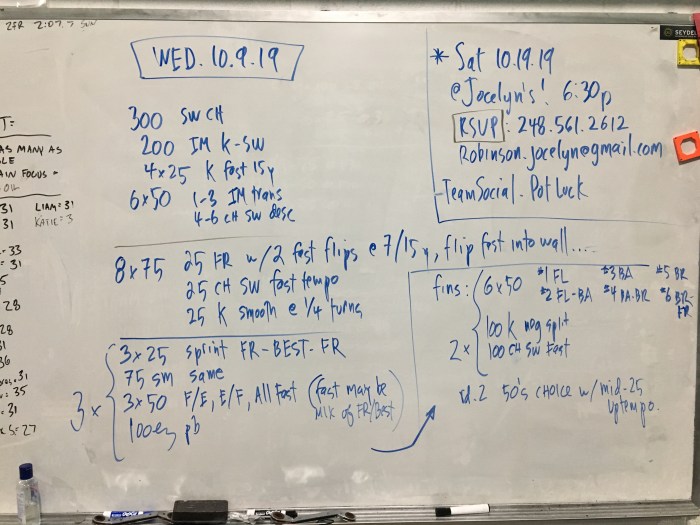 2FR 2:07.
WED. 10.9.19
300 SW CH
200 IM K-SW
4x25 K fast 15y
6x50 1-3 IM trans
4-6 CH SW desc
8x75 25 FR w/2 fast flips @ 7/15y, flip fast into wall....
25 CH SW fast tempo
25 K smooth @ 1/4 turns
3x
3x25 sprint FR-BEST-FR
75 sm same
3x50 F/E, E/F, All Fast (fast may be
mix of FR/Best)
100 ez pb
* Sat 10.19.19
@Jocelyn's! 6:30p
RSVP: 248.561.2612
Robinson.jocelyn@gmail.com
-Team Social. Pot Luck
fins: 6x50 #1 FL #3 BA #5 BR
#2 FL-BA #4 BA-BR #6 BR-
FR
2x
100 K neg split
100 CH SW Fast
rd.2 50's CHOICE w/ mid-25
uptempo.
T=
AS MANY AS
LE
AIN FOCUS -
31 LIAM=31
31 KATIE=3
-33
=31
28
28
31
36
31
=35
=31
S=27
SEYDEL
EXPO